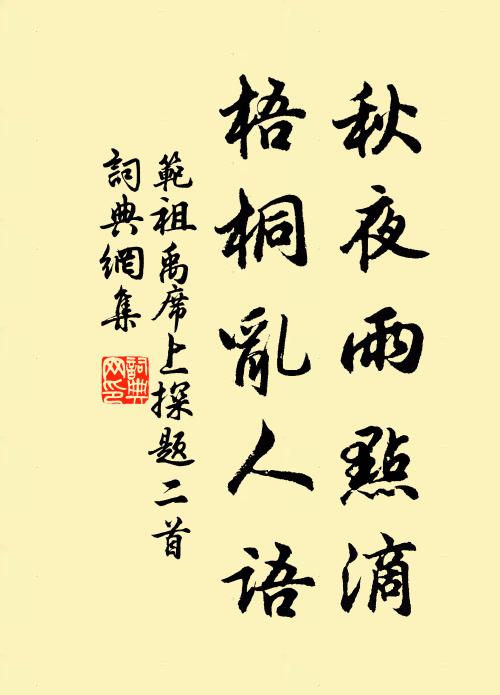 秋夜雨點滴
梧桐亂人語
範祖禹席上探題二首
詞典網集
詞典網印